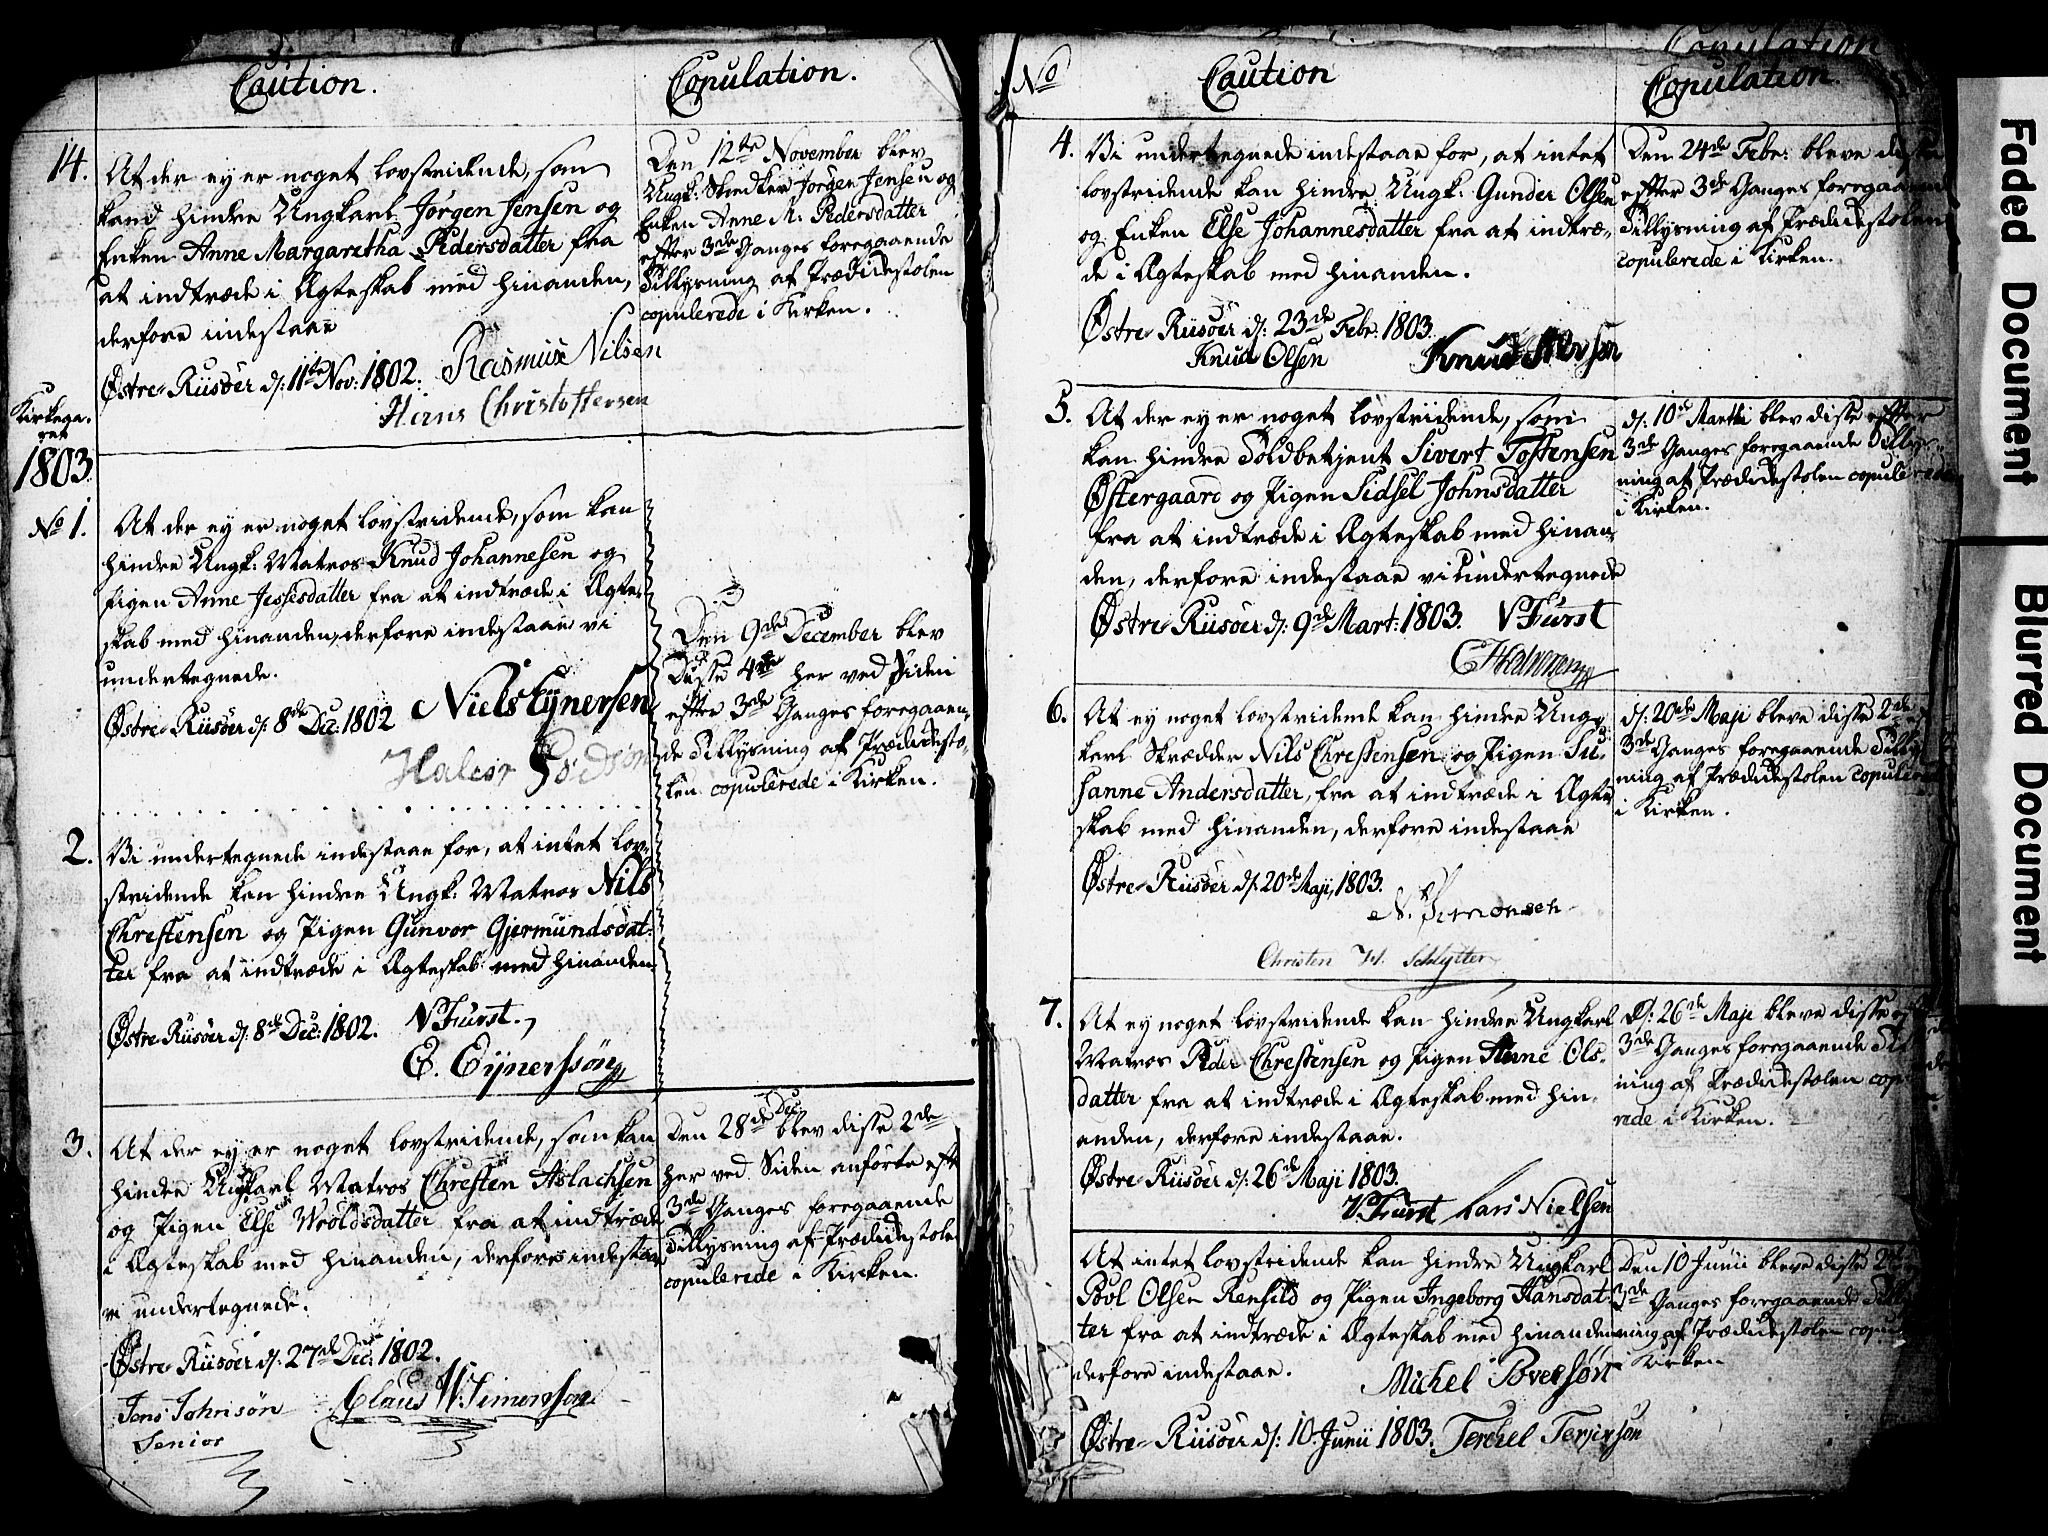 Caution.
Copulation.
14. At der ey er noget lovstridende, som
kand hindre Ungkarl Jørgen Jensen og
Enken Anne Margaretha Pedersdatter fra
at indtræde i Ægteskab med hinanden,
derfore indestaae
Østre-Riisøer d: 11te Nov: 1802. Rasmus Nilsen
Hans Christoffersen
Den 12te November blev
Ungk: Jørgen Jensen og
Enken Anne M: Pedersdatter
efter 3de Ganges foregaaende
Tillysning af Prædikestolen
copulerede i Kirken.
Kirkega-
ret
1803
No 1. At der ey er noget lovstridende, som kan
hindre Ungk: Matros Knud Johannesen og
Pigen Anne Jessisdatter fra at indtræde i Ægte-
skab med hinanden, derfore indestaae vi
undertegnede.
Østre-Riisøer d: 8de Dec: 1802 Niels Eynersen
Halvor
Den 9de December blev
Disse 4re her ved Siden
efter 3de Ganges foregaaen-
de Tillysning af Prædikesto-
len copulerede i Kirken.
2. Vi undertegnede indestaae for, at intet lov-
stridende kan hindre Ungk: Matros Nils
Christensen og Pigen Gunvor Gjermundsdat-
ter fra at indtræde i Ægteskab med hinanden
Østre-Riisøer d: 8de Dec: 1802. N Fürst.
E. Eynerssøn
3. At der ey er noget lovstridende, som kan
hindre Ungkarl Matros Christen Aslachsen
og Pigen Else Wroldsdatter fra at indtræde
i Ægteskab med hinanden, derfore indestaae
vi undertegnede.
Østre-Riisøer d: 27de Dec: 1802.
Jens Johnsøn Claus W: Simonsson
Senior
Den 28de Dec blev disse 2de
her ved Siden anførte eft
3de Ganges foregaaende
Tillysning af Prædikestole
copulerede i Kirken.
No
Caution
Copulation
Copulation.
4. Vi undertegnede indestaae for, at intet
lovstridende kan hindre Ungk: Gunder Olsen
og Enken Else Johannesdatter fra at indtræ-
de i Ægteskab med hinanden.
Østre-Riisøer d: 23de Febr: 1803.
Knud Olsen Knud
Den 24de Febr: bleve disse
efter 3de Ganges foregaaend
Tillysning af Prædikestolen
copulerede i Kirken.
5. At der ey er noget lovstriidende, som
kan hindre Toldbetjent Sivert Tostensen
Østergaard og Pigen Sidsel Johnsdatter
fra at indtræde i Ægteskab med hinan-
den, derfore indestaae vi undertegnede
Østre-Riisøer d: 9de Mart: 1803. N Fürst
d: 10de Martii blev disse efter
3de Ganges foregaaende Tillys-
ning af Prædikestolen copulerede
i Kirken.
6. At ey noget lovstridende kan hindre Ung-
karl Skrædder Nils Christensen og Pigen Su-
sanne Andersdatter, fra at indtræde i Ægte
skab med hinanden, derfore indestaae
Østre-Riisøer d: 20de Maji, 1803.
N. Simonsen
Christen W. Schlytter
d: 20de Maji bleve disse 2de
3de Ganges foregaaende Tilly
ning af Prædikestolen copuler
i Kirken.
7. At ey noget lovstridende kan hindre Ungkarl
Matros Peder Christensen og Pigen Anne Ols-
datter fra at indtræde i Ægteskab med hin-
anden, derfore indestaae.
Østre-Riisøer d: 26de Maji 1803.
N. Fürst Lars Nielsen
D: 26de Maji bleve disse
3de Ganges foregaaende
ning af Prædikestolen cop
rede i Kirken.
At intet lovstridende kan hindre Ungkarl
Povl Olsen Rensild og Pigen Ingeborg Hansdat-
ter fra at indtræde i Ægteskab med hinanden
derfore indestaae. Michel Povelsøn
Østre-Riisøer d: 10. Junii 1803. Terchel Terjersøn
Den 10 Junii bleve disse 2de
3de Ganges foregaaende
ning af Prædikestolen copu
i Kirken
Faded Document
Blurred Document